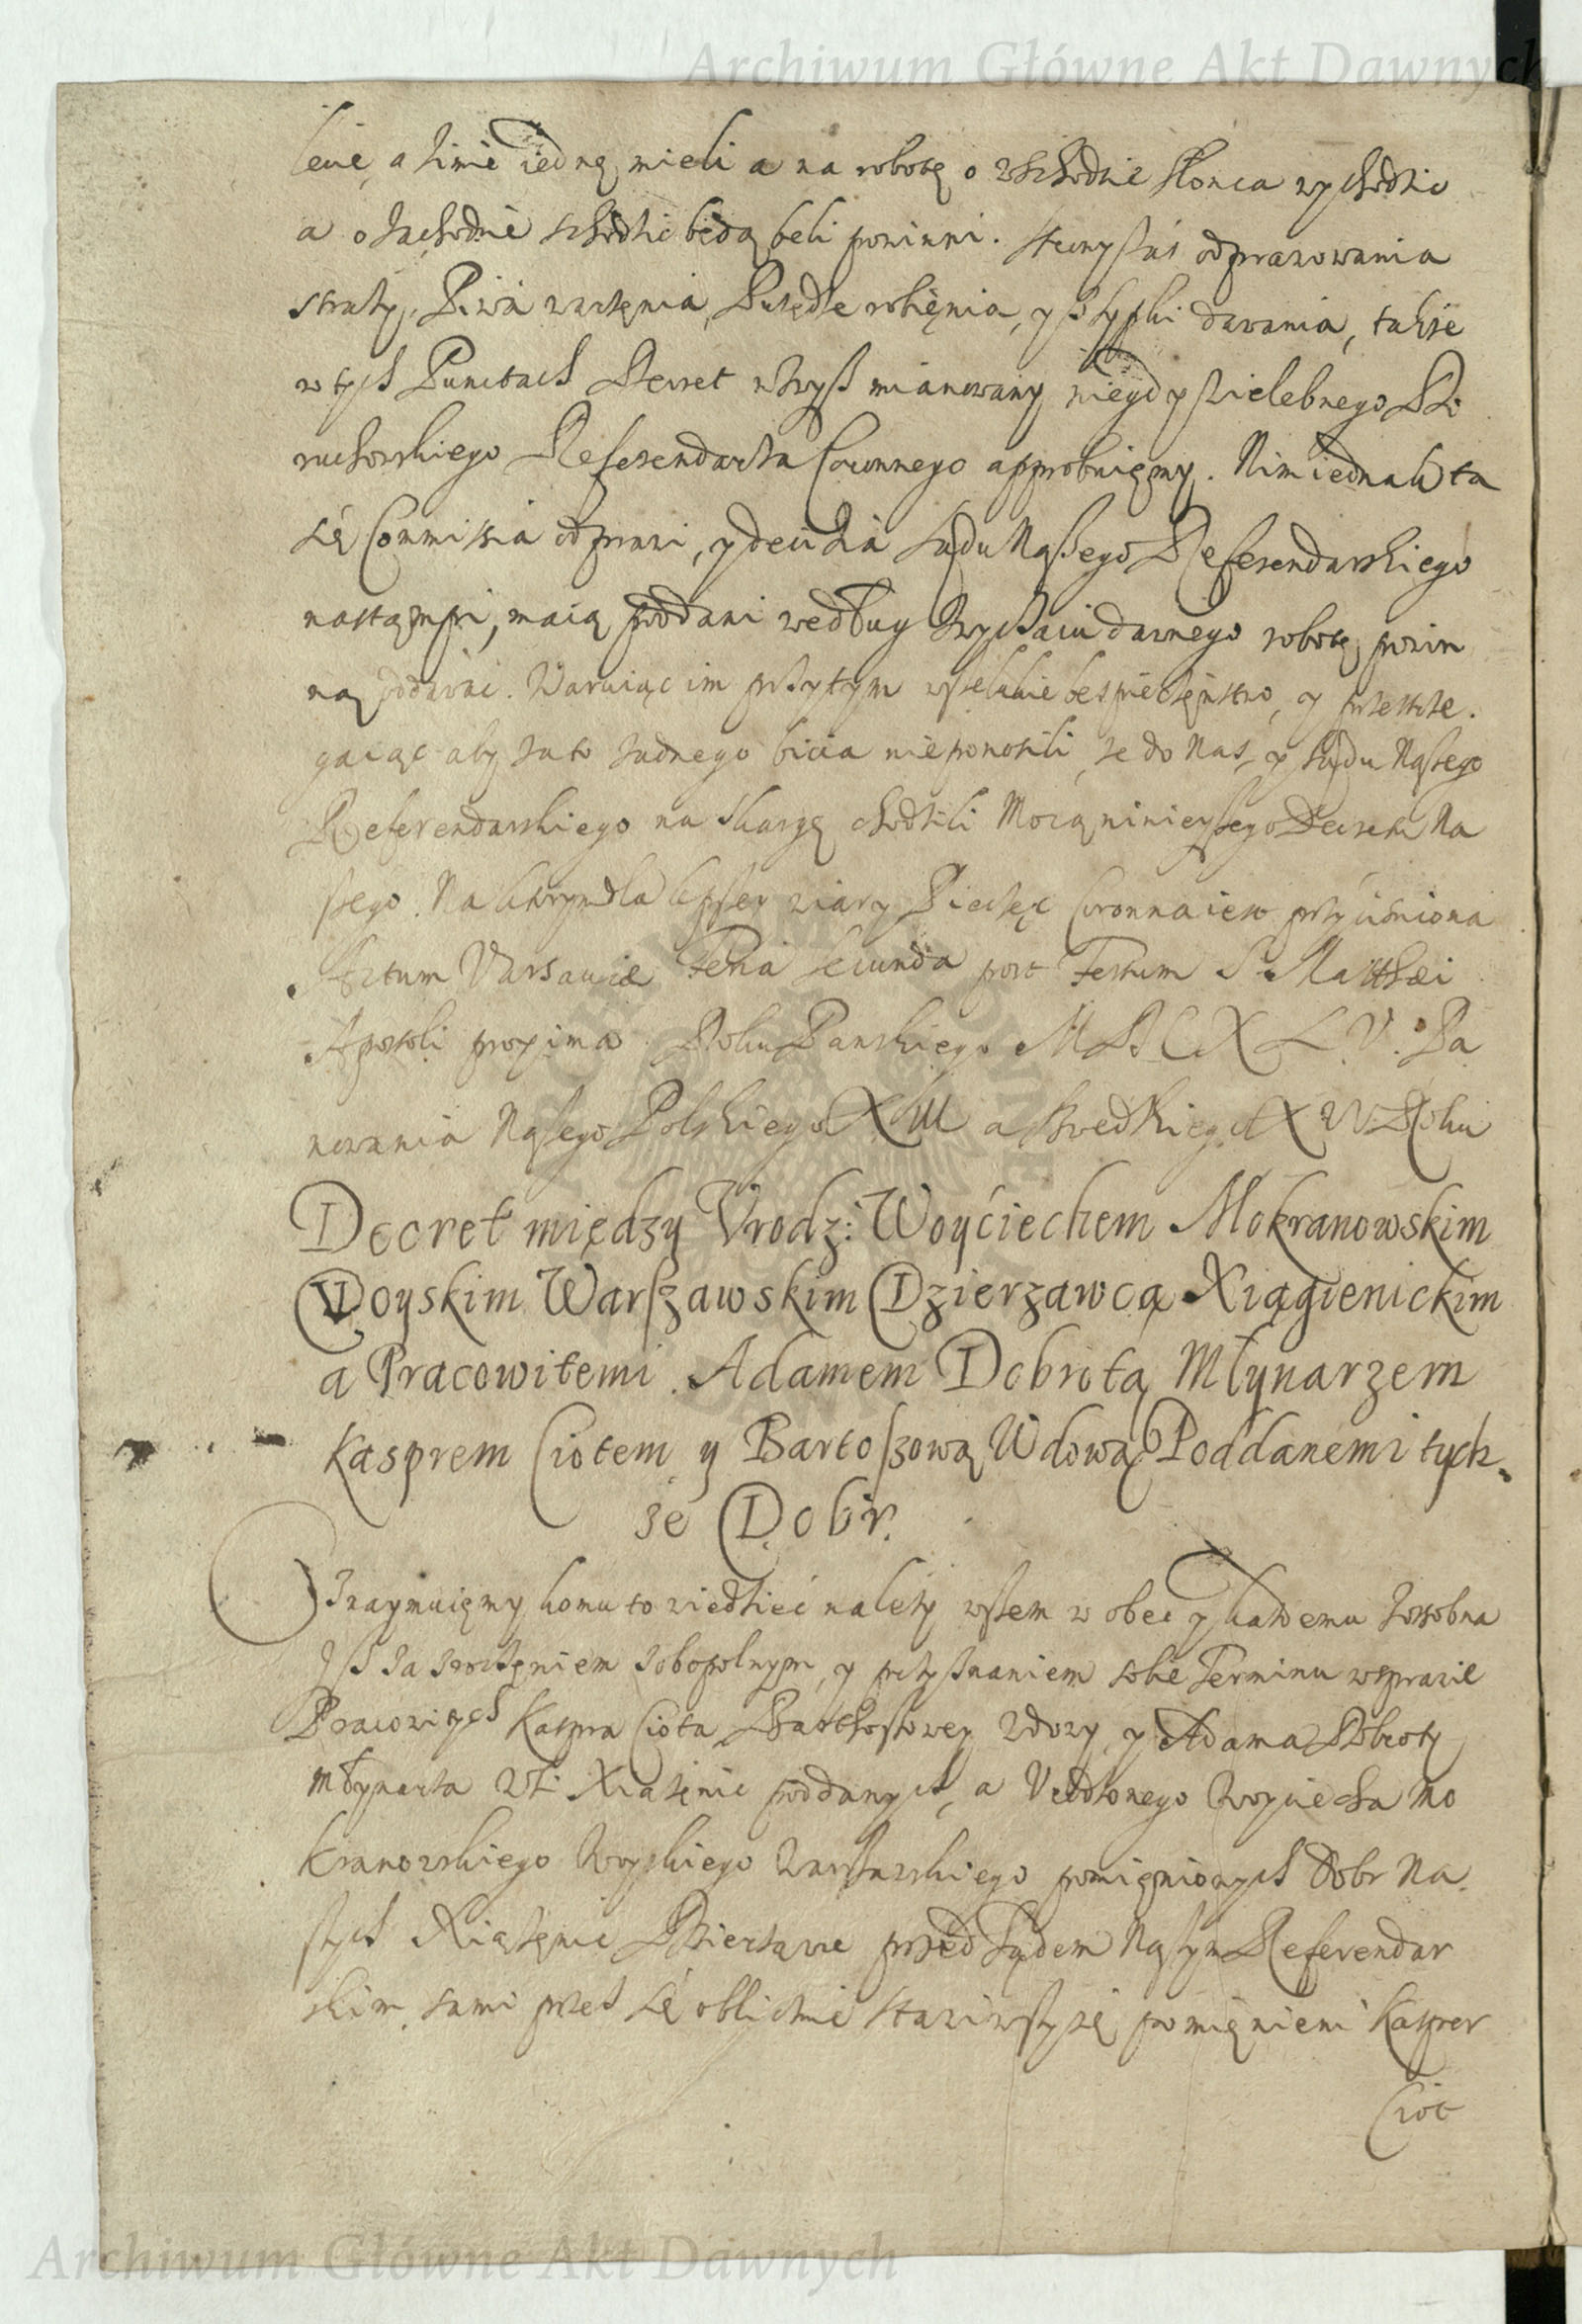 Archiwum Główne Akt Dawnych
lecie, a zimie iednę mieli a na robotę o wschodzie słonca wychodzic
a o zachodzie schodzic będą beli powinni. odprawowania
straży, Piwa warzęnia, robięnia, y dawania, także
w tych Punctach Decret mianowany niegdy wielebnego
ruchowskiego Referendarza Coronnego approbuięmy. Nim iednak ta
się Commissia odprawi, y decizia sądu Naszego Referendarskiego
nastąmpi, maią poddani według zwyczaiu dawnego robotę powin
ną oddawac. Waruiąc im przytym wszelakie bespieczęnstwo, y przestrze.
gaiąc aby za to żadnego bicia nieponosili, że do Nas, y sądu Naszego
Referendarskiego na skargę chodzili Mocą ninieyszego Decretu Na
szego. Na ktorym dla lepszey wiary Pieczęc Coronna iest przyciśniona
Actum Varsaviæ Feria secunda post Festum S. Matthæi
Apostoli proxima Roku Panskiego M D C X L V. Pa
nowania Naszego Polskiego XIII a Szwedzkiego XIV Roku
Decret między Vrodz: Woyciechem Mokranowskim
Woyskim Warszawskim Dzierzawcą Xiągienickim
a Pracowitemi Adamem Dobrotą Młynarzem
Kasprem Ciotem y Bartoszową Wdową Poddanemi tych
ze Dobr.
Oznaymuięmy komu to wiedzieć należy wszem w obec y każdemu zosobna
Isz za zeszczęniem obopolnym, y przyznaniem sobie Terminu w sprawie
Pracowitych Kaspra Ciota Barthoszowey Wdowy, y Adama Dobroty
Młynarza Wsi Xiążęnic poddanych, a Vrodzonego Woyciecha Mo
kranowskiego Woyskiego Warszawskiego pomięnionych Dobr Na
szych Xiążęnic Dzierżawce przed sądem Naszym Referendar
skim, sami przez się oblicznie stawiwszy się pomięnieni Kasper
Ciot
Archiwum Główne Akt Dawnych